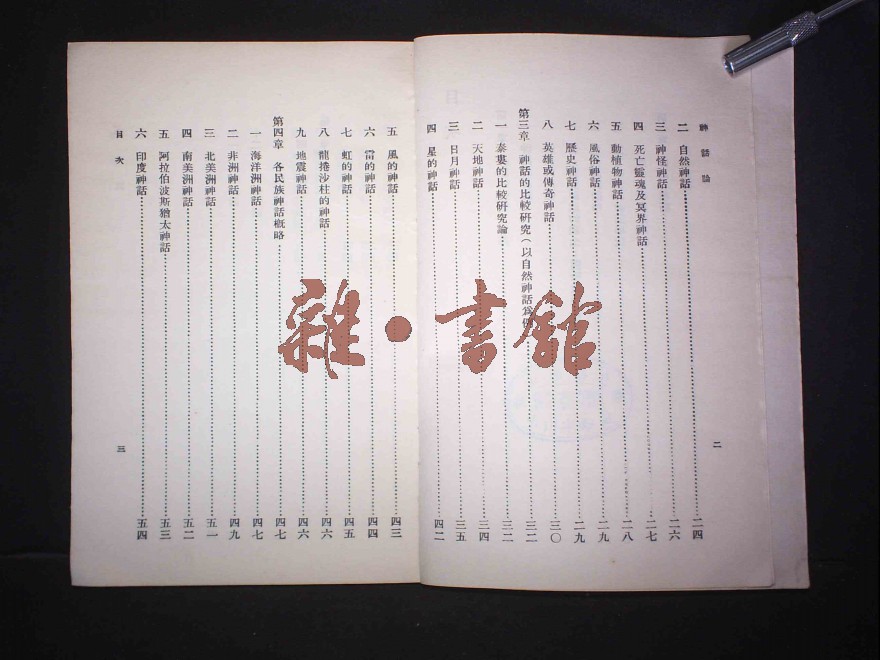 神話論
二 自然神話 二四
三 神怪神話 二六
四 死亡靈魂及冥界神話 二七
五 動植物神話 二八
六 風俗神話 二九
七 歷史神話 二九
八 英雄或傳奇神話 三〇
第三章 神話的比較研究(以自然神話為例 三二
一 泰婁的比較研究論 三二
二 天地神話 三四
三 日月神話 三五
四 星的神話 四二
二
五 風的神話 四三
六 雷的神話 四四
七 虹的神話 四五
八 龍捲沙柱的神話 四六
九 地震神話 四六
第四章 各民族神話概略 四七
一 海洋洲神話 四七
二 非洲神話 四九
三 北美洲神話 五一
四 南美洲神話 五二
五 阿拉伯波斯猶太神話 五三
六 印度神話 五四
目次
三
雜·書館